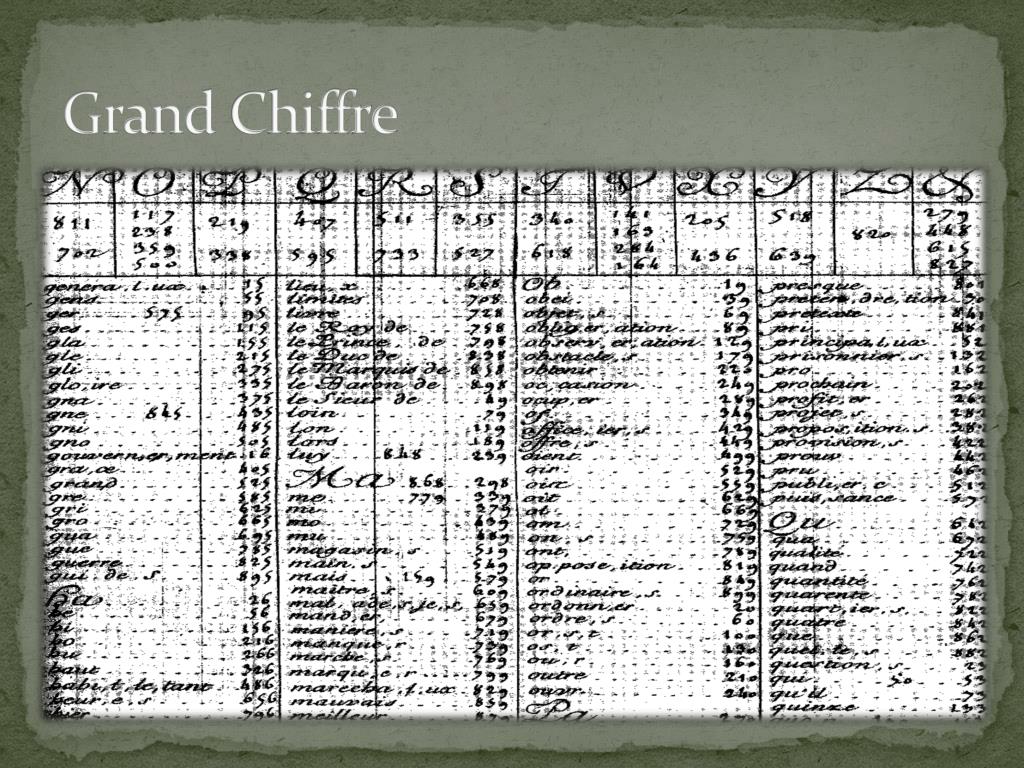 Grand Chiffre
N O P Q R S T V X Y Z &
811 117 219 407 511 355 340 141 205 518 279
238 163 820 448
702 359 338 595 733 527 618 284 436 639 615
500 164
genera,l,ux 15
gens 55
ger 575 95
ges 115
gla 155
gle 215
gli 275
glo,ire 335
gna 375
gne 845 435
gni 485
gno 505
gouvern,er,ment 16
gra,ce 405
grand 525
gre 585
gri 625
gro 665
gua 695
gue 785
guerre 825
gui de,s 895
Ha 26
he 56
hi 156
ho 216
hu 266
haut 326
habi,t,le,tant 486
heur,e,s 656
hier 796
lieu x 668
limites 708
livre 728
le Roy de 758
le Prince de 798
le Duc de 838
le Marquis de 858
le Baron de 898
le Sieur de 49
loin 79
lon 119
lors 189
luy 848 239
Ma 868 298
me 779 339
mi 379
mo 439
mu 489
magasin,s 519
main,s 549
mais 159 579
maitre,s 609
mal,ade,s,je,s 659
mand,er 679
maniere,s 719
manque,r 739
marche,s 769
marqu,e,r 799
marecha,l,ux 829
mauvais 859
meilleur
Ob 19
obei 39
objet,s 69
oblig,er,ation 89
observ,er,ation 129
obstacle,s 179
obtenir 220
oc,casion 249
ocup,er 289
of 349
office,ier,s 429
offre,s 449
oient 499
oir 529
ois 559
oit 629
ol 669
om 729
on,s 759
ont 789
op,pose,ition 819
or 849
ordinaire,s 899
ordonn,er 20
ordre,s 60
or,s,t 100
os,t 130
ou,r 160
outre 210
ouvr 240
Pa
presque
preten,dre,tion
pretexte
pri
principa,l,ux
prisonnier,s
pro
prochain
profit,er
projet,s
propos,ition,s
provision,s
prouv
pru
publi,er,c
puis,sance
Qu
qua
qualité
quand
quantité
quarente
quart,ier,s
quatre
que
quel,le,s
question,s
qui 50
qu'il
quinze